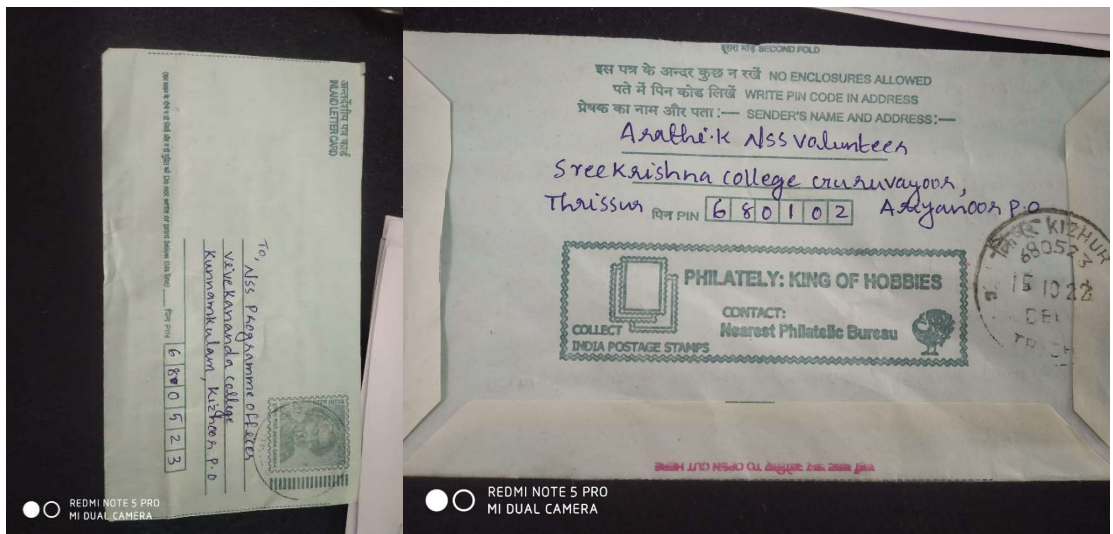 अन्तर्देशीय पत्र कार्ड
INLAND LETTER CARD
To, NSS Programme officer
Vivekananda College
Kunnamkulam, Kizhoor P.O
पिन PIN 680523
REDMI NOTE 5 PRO
MI DUAL CAMERA
दूसरा मोड़ SECOND FOLD
इस पत्र के अन्दर कुछ न रखें NO ENCLOSURES ALLOWED
पते में पिन कोड लिखें WRITE PIN CODE IN ADDRESS
प्रेषक का नाम और पता :— SENDER'S NAME AND ADDRESS:—
Arathi.K NSS Volunteer
Sree Krishna College Guruvayoor,
Thrissur पिन PIN 680102 Ariyanoor P.O
KIZHUR
680523
15 10 22
DEL
PHILATELY: KING OF HOBBIES
CONTACT:
Nearest Philatelic Bureau
COLLECT
INDIA POSTAGE STAMPS
TO OPEN CUT HERE
REDMI NOTE 5 PRO
MI DUAL CAMERA